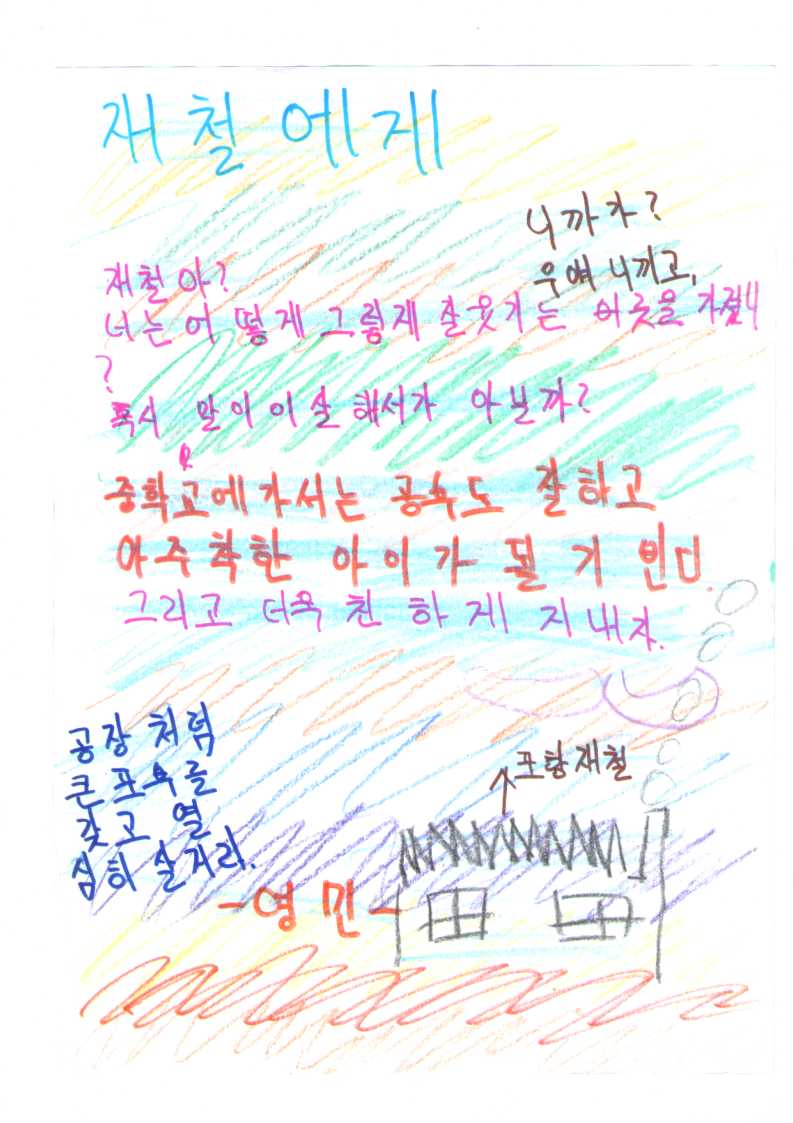 재철에게
니까자?
우예 니끼고,
재철아?
너는 어떻게 그렇게 잘 웃기는
?
혹시 말이 이상해서가 아닐까?
중학교에 가서는 공부도 잘하고
아주 착한 아이가 될 기 빈다.
그리고 더욱 친하게 지내자.
공장처럼
큰 포부를
갖고 열
심히 살거라.
포항재철
-영민-